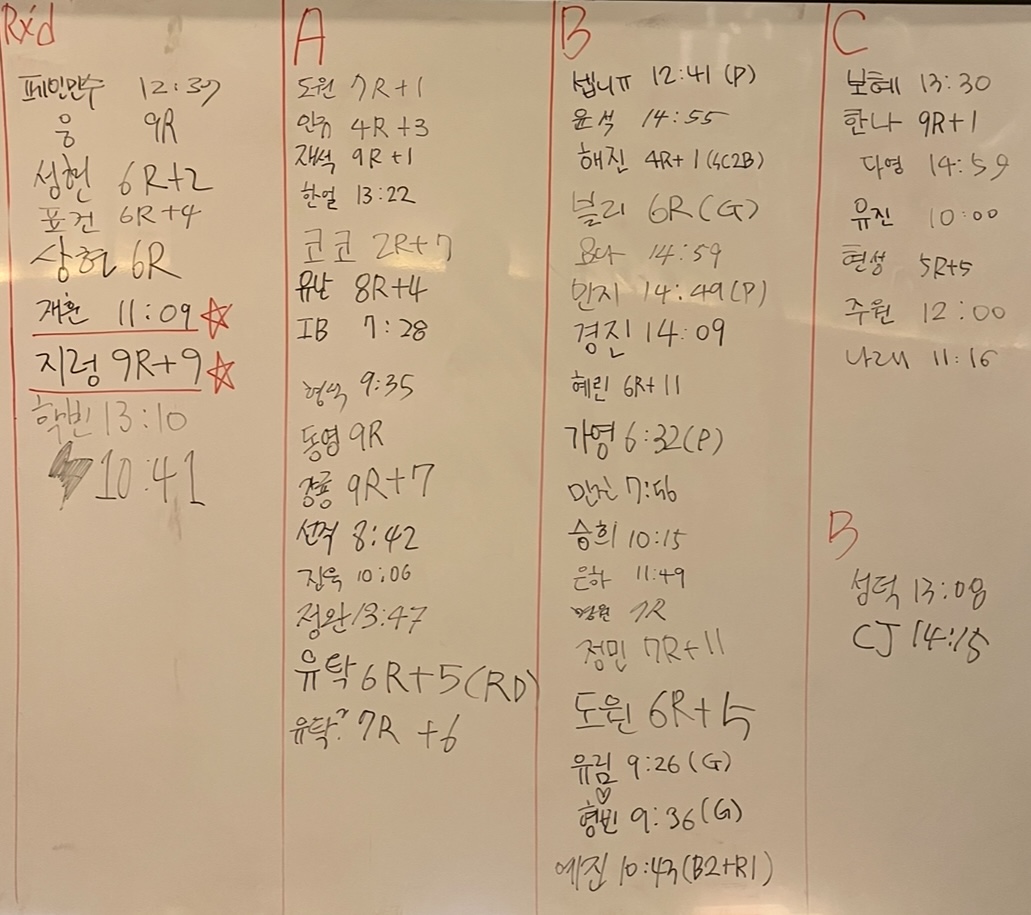 Rx'd
페인만수 12:30
웅 9R
성헌 6R+2
표건 6R+4
상헌 6R
재환 11:09
지렁 9R+9
학빈 13:10
10:41
A
도원 7R+1
4R+3
재석 9R+1
한얼 13:22
코코 2R+7
유난 8R+4
IB 7:28
형석 9:35
동영 9R
경룡 9R+7
선적 8:42
진욱 10:06
정완 13:47
유탁 6R+5(RD)
유탁? 7R +6
B
셉니ㅠ 12:41 (P)
윤석 14:55
해진 4R+1(4C2B)
블리 6R(G)
14:59
민지 14:49(P)
경진 14:09
혜린 6R+11
가영 6:32(P)
민진 7:56
승희 10:15
은하 11:49
7R
정민 7R+11
도원 6R+5
유림 9:26(G)
♡
형빈 9:36(G)
예진 10:43(B2+R1)
C
보혜 13:30
한나 9R+1
다영 14:59
유진 10:00
현성 5R+5
주원 12:00
나래 11:16
B
성덕 13:08
CJ 14:15